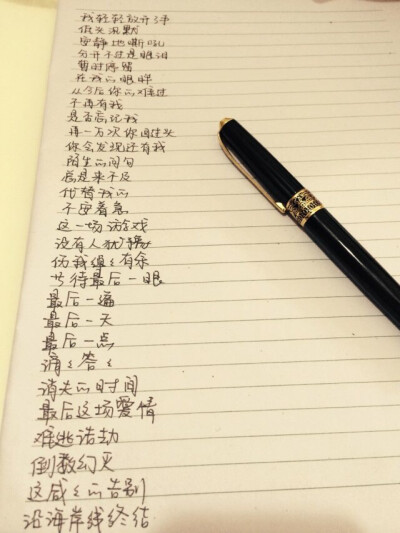 我轻轻放开了手
低头沉默
安静地嘶吼
分开不过是眼泪
暂时停留
在我的眼眸
从今后你的难过
不再有我
是否忘记我
再一万次你回头
你会发现还有我
陌生的问句
总是来不及
代替我的
不安着急
这一场游戏
没有人犹豫
伤我绰绰有余
等待最后一眼
最后一遍
最后一天
最后一点
滴滴答答
消失的时间
最后这场爱情
难逃浩劫
倒数幻灭
这咸咸的告别
沿海岸线终结